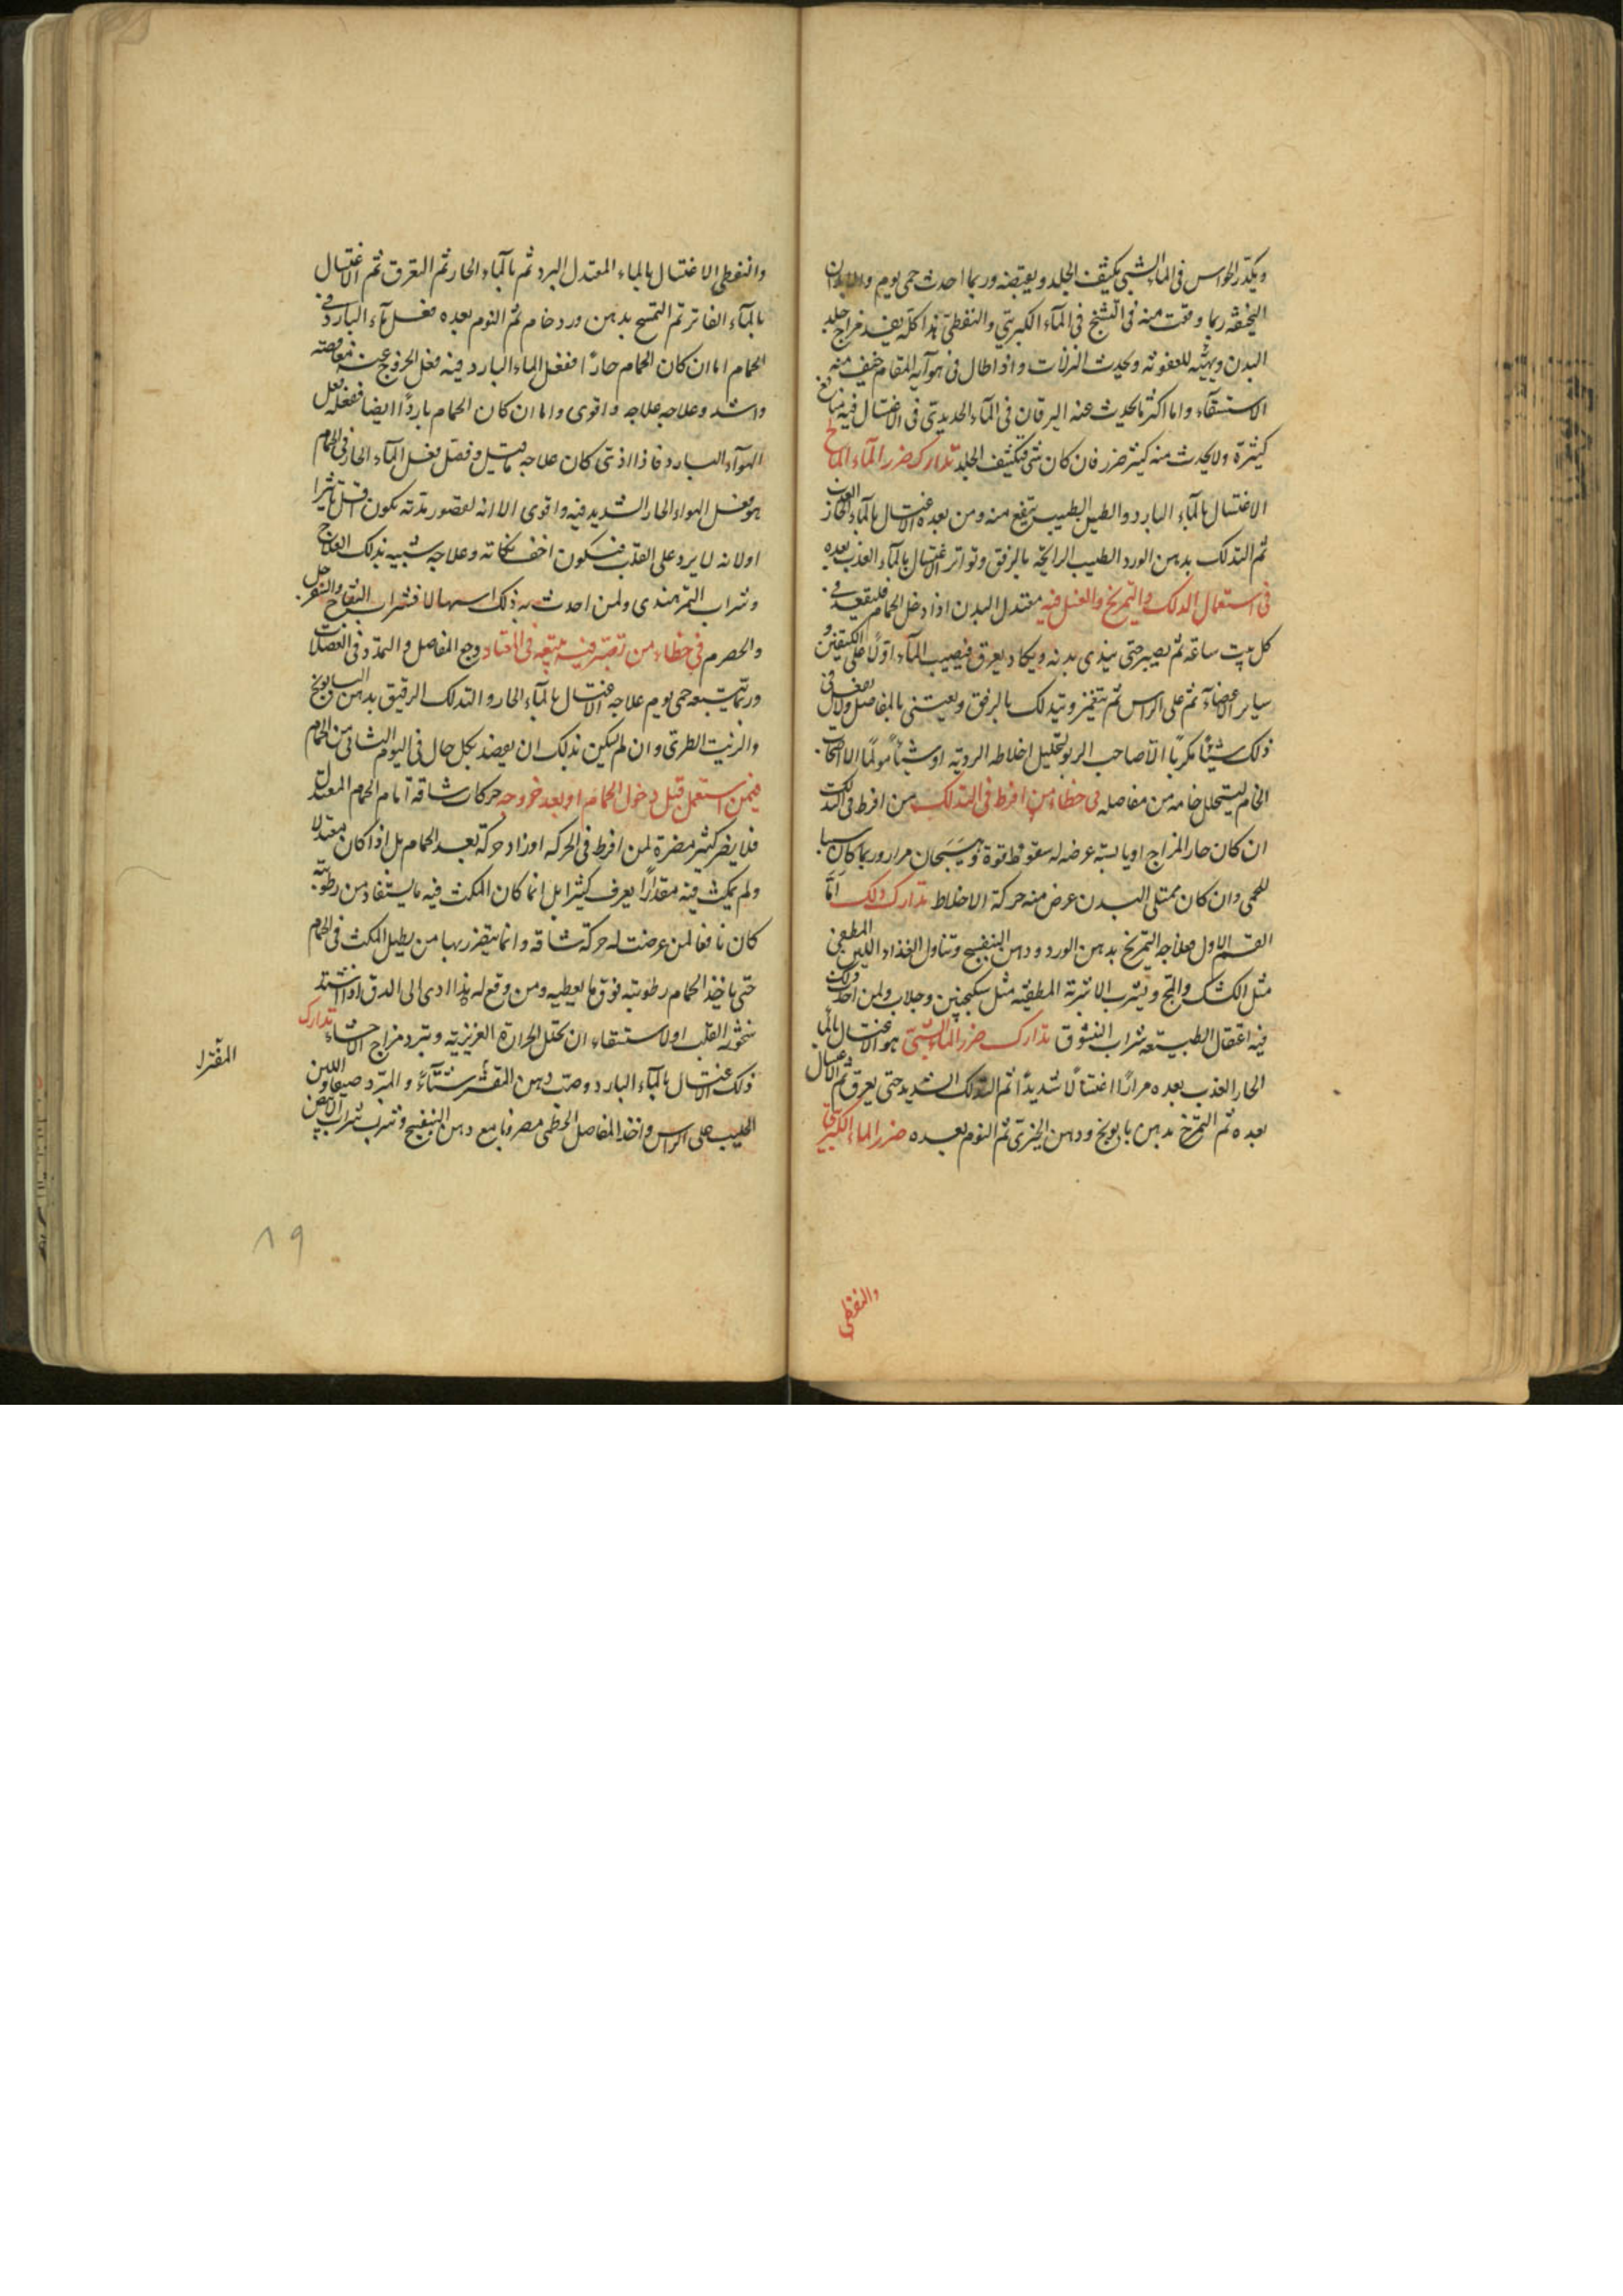 ويكدر الحواس في الماء الشبي يكثف الجلد ويقبضه وربما احدث حمى يوم والابدان
النحيفة ربما وقعت منه في التشنج في الماء الكبريتي والنفطي هذا كله يفسد مزاج جلد
البدن ويهيئه للعفونة ويحدث النزلات واذا طال في هوآيه المقام خيف منه
الاستسقآء واما اكثر ما يحدث عنه اليرقان في المآء الحديدي في الاغتسال فيه منافع
كثيرة ولا يحدث منه كثير ضرر فان كان شئ فتكثف الجلد تدارك ضرر المآء المالح
الاغتسال بالمآء البارد والطين الطيب ينتفع منه ومن بعده الاغتسال بالمآء العذب الحار
ثم التدلك بدهن الورد الطيب الرايحة بالرفق وتواتر الاغتسال بالمآء العذب بعده
في استعمال الدلك والتمريخ والغسل فيه معتدل البدن اذا دخل الحمام فليقعد في
كل بيت ساعة ثم يصير حتى يندى بدنه ويكاد يعرق فيصيب المآء اولا على الكتفين و
ساير الاعضآء ثم على الراس ثم يتغمز ويتدلك بالرفق ويعتني بالمفاصل ولا يفعل في
ذلك شيئا مكربا الا صاحب الربو لتحليل اخلاطه الردية او شيئا مولما الا اصحاب
الخام ليتحلل خامه من مفاصله في خطاء من افرط في التدلك من افرط في التدلك
ان كان حار المزاج او يابسه عرض له سقوط قوة وهيجان مرار وربما كان سببا
للحمى وان كان ممتلى البدن عرض منه حركة الاخلاط تدارك ذلك اما
القسم الاول فعلاجه التمريخ بدهن الورد ودهن البنفسج وتناول الغذاء اللين المطفي
مثل الكشك والمج ويشرب الاشربة المطفية مثل سكنجبين وجلاب ولمن احدث ذلك
فيه اعتقال الطبيعة شراب النشوق تدارك ضرر الماء الشبي هو الاغتسال بالمآ
الحار العذب بعده مرارا اغتسالا شديدا ثم التدلك الشديد حتى يعرق ثم الاغتسال
بعده ثم التمرخ بدهن بابونج ودهن الخيري ثم النوم بعده ضرر الماء الكبريتي
والنفطي
والنفطي الاغتسال بالماء المعتدل البرد ثم بالمآء الحار ثم التعرق ثم الاغتسال
بالمآء الفاتر ثم التمسح بدهن ورد خام ثم النوم بعده فعل مآء البارد في
الحمام اما ان كان الحمام حارا ففعل الماء البارد فيه فعل الخروج عنه مغافصة
واشد وعلاجه علاجه واقوى واما ان كان الحمام باردا ايضا ففعله فعل
الهوآء البارد فاذا اذى كان علاجه فعل المآء الحار في الحمام
هو فعل الهواء الحار الشديد فيه واقوى الا انه لقصور مدته يكون اقل تاثيرا
او لانه لا يرد على القلب فيكون اخف نكاته وعلاجه شبيه بذلك العلاج
وشراب التمر هندي ولمن احدث به ذلك اسهالا فشراب التفاح والسفرجل
والحصرم في خطاء من تعب فيه وجع المفاصل والتمدد في العضلات
وربما يتبعه حمى يوم علاجه الاغتسال بالمآء الحار والتدلك الرقيق بدهن البابونج
والزيت الطري وان لم يسكن بذلك ان يفصد بكل حال في اليوم الثاني من الحمام
فيمن استعمل قبل دخول الحمام او بعد خروجه حركات شاقة امام الحمام المعتدل
فلا يضر كثير مضرة لمن افرط في الحركة او زاد حركة بعد الحمام بل اذا كان معتدلا
ولم يمكث فيه مقدارا يعرق كثيرا بل انما كان المكث فيه ما يستفاد من رطوبته
كان نافعا لمن عرضت له حركة شاقة وانما يتضرر بها من يطيل المكث في الحمام
حتى ياخذ الحمام رطوبته فوق ما يعطيه ومن وقع له هذا ادى الى الدق اذا اشتد
سخونة القلب او الاستسقاء ان تحلل الحرارة الغريزية وتبرد مزاج الاحشاء تدارك
ذلك الاغتسال بالمآء البارد وصب دهن المقشر شتآء والمبرد صيفا واللبن
الحليب على الراس واخذ المفاصل الخطمي مضروبا مع دهن البنفسج وشرب شراب الابيض
المقتدر
٨٩